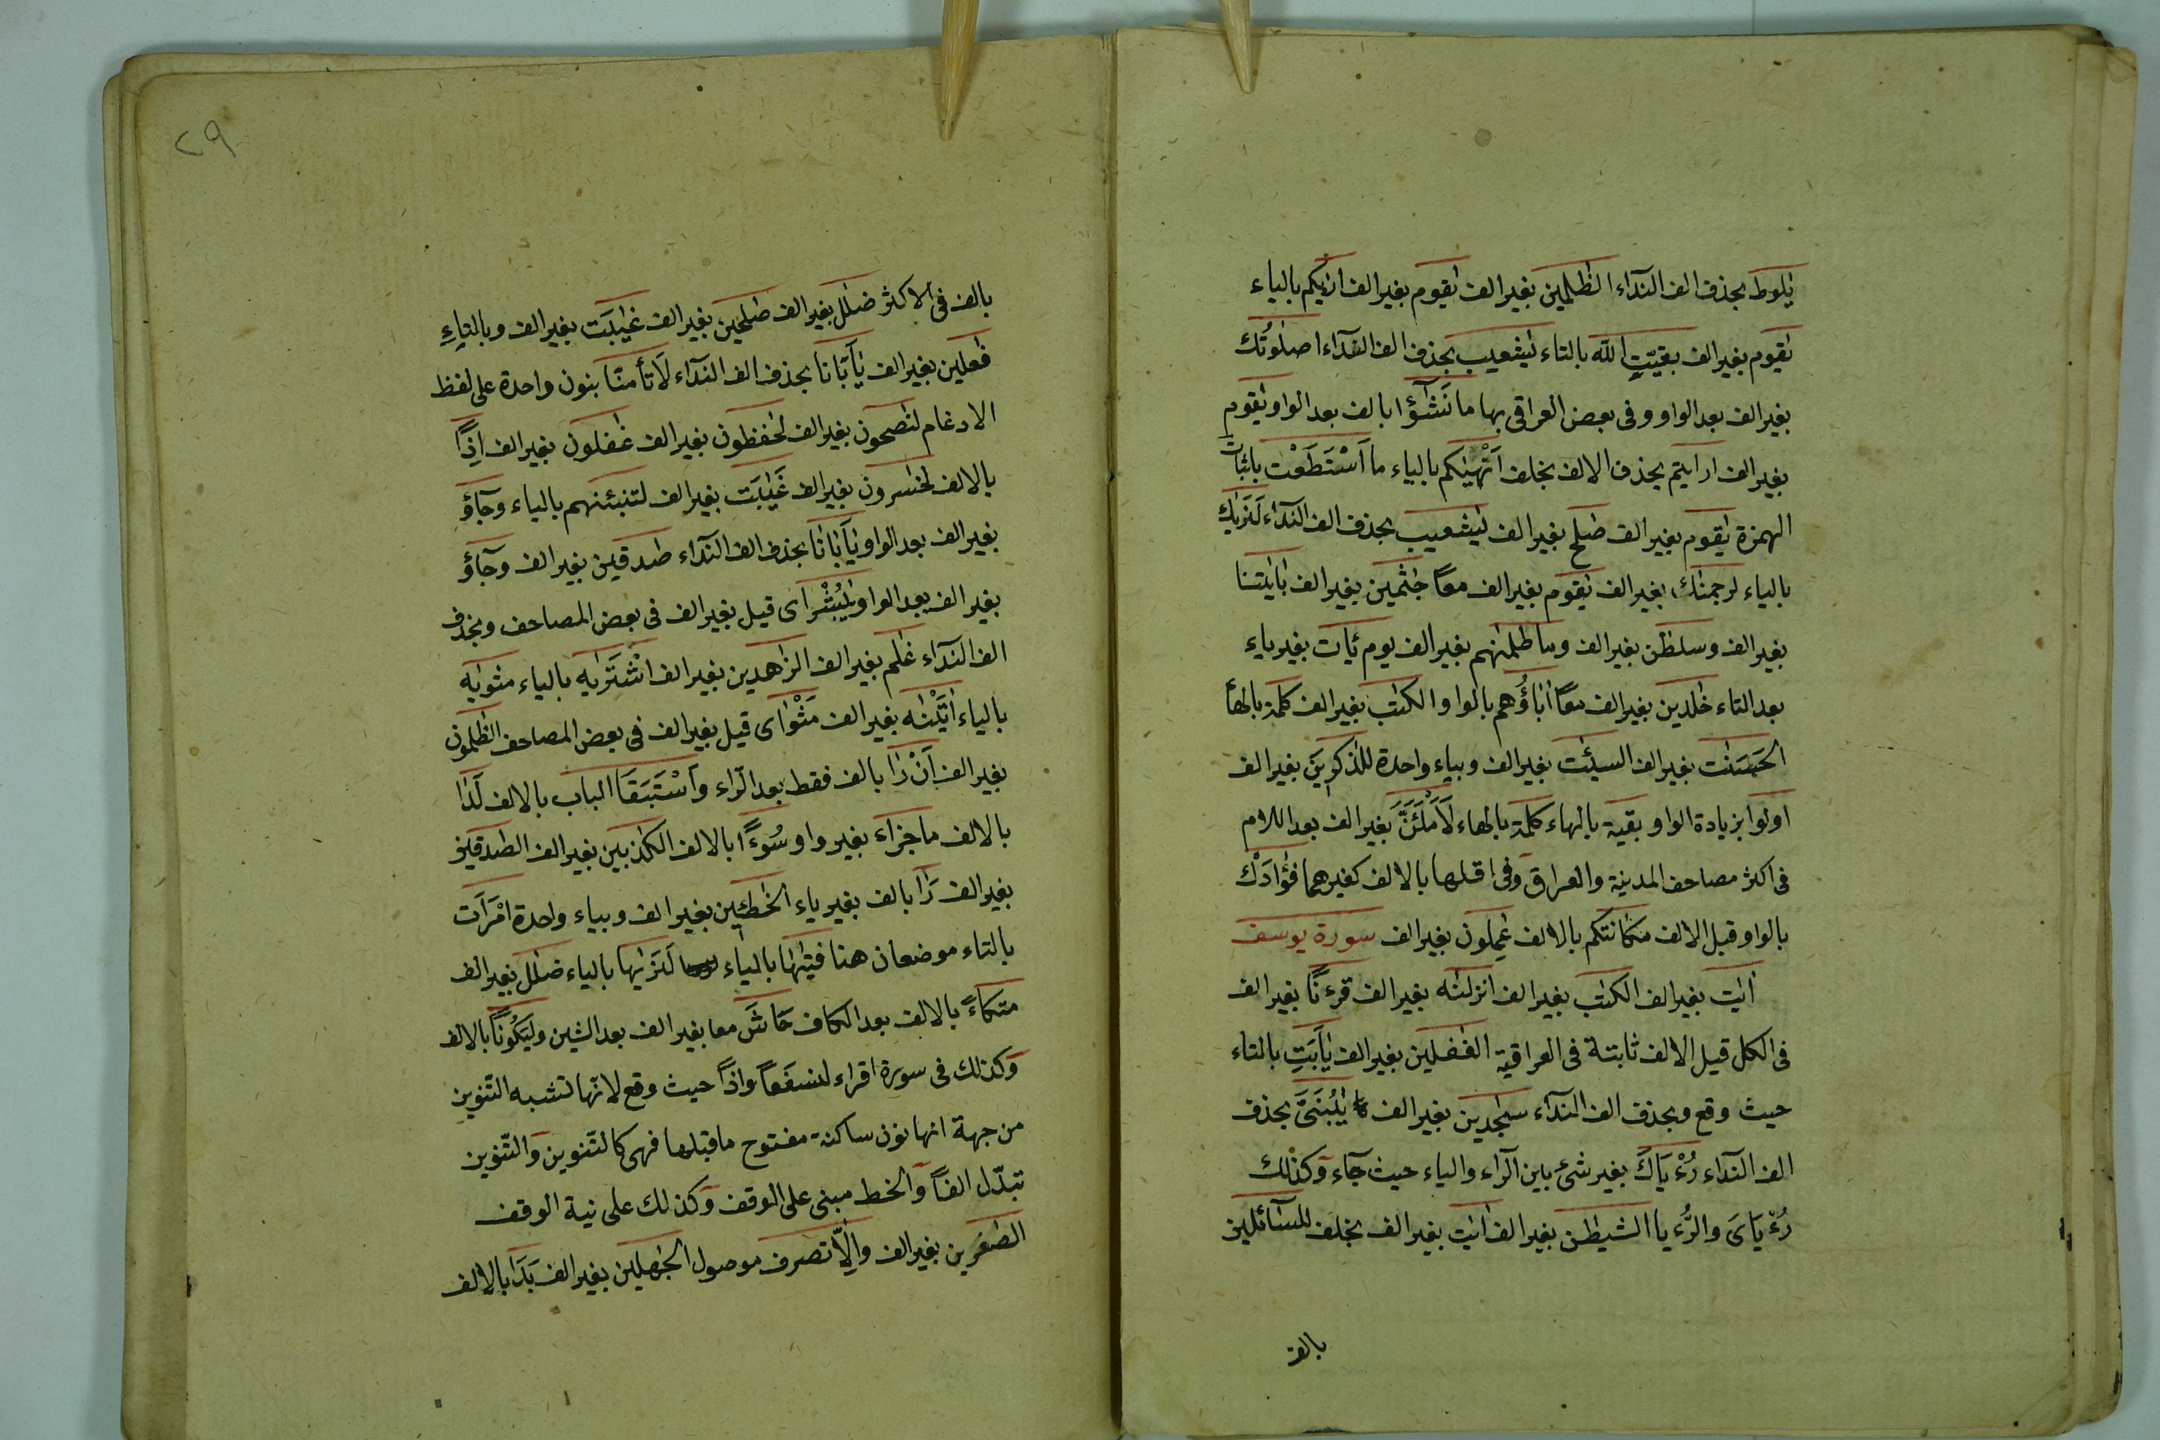 يٰلوط بحذف الف النداء الظلمين بغير الف يٰقوم بغير الف ارٰيكم بالياء
يٰقوم بغير الف بقيّتِ الله بالتاء يٰشعيب بحذف الف النداء اصلٰوتُك
بغير الف بعد الواو وفى بعض العراقى بها ما نَشٰؤُا بالف بعد الواو يٰقوم
بغير الف ارايتم بحذف الالف بخلف اَنْهٰيكم بالياء ما اَسْتَطَعْت باثبات
الهمزة يٰقوم بغير الف صٰلح بغير الف يٰشعيب بحذف الف النداء لَنَرٰيك
بالياء لرجمنٰك بغير الف يٰقوم بغير الف معًا جٰثمين بغير الف باٰيٰتنا
بغير الف وسلطٰن بغير الف وما ظلمنٰهم بغير الف يوم يَأت بغير ياء
بعد التاء خٰلدين بغير الف معًا اٰباؤُهم بالواو الكتٰب بغير الف كلمة بالهاء
الحَسَنٰت بغير الف السيئٰت بغير الف وبياء واحدة للذٰكرِينَ بغير الف
اولوا بزيادة الواو بقية بالهاء كلمة بالهاء لَأَمْلَئَنَّ بغير الف بعد اللام
فى اكثر مصاحف المدينة والعراق وفى اقلها بالالف كغيرهما فؤَادَك
بالواو قبل الالف مكانتكم بالالف عٰمِلون بغير الف سورة يوسف
اٰيٰت بغير الف الكتٰب بغير الف انزلنٰه بغير الف قرءٰنًا بغير الف
فى الكل قيل الالف ثابتة فى العراقية الغٰفلين بغير الف يٰاَبَتِ بالتاء
حيث وقع وبحذف الف النداء سٰجدين بغير الف يٰبُنَىَّ بحذف
الف النداء رُءْيَاكَ بغير شئ بين الراء والياء حيث جاء وكذٰلك
رُءْيَاىَ والرُّءْيا الشيطٰن بغير الف اٰيٰت بغير الف بخلف للسّائلين
بالف
٢٩
بالف فى الاكثر ضلٰل بغير الف صٰلحين بغير الف غيٰبَت بغير الف وبالتاءِ
فٰعلين بغير الف يٰاَبَانَا بحذف الف النداء لَا تَأمنّا بنون واحدة على لفظ
الادغام لنٰصحون بغير الف لحٰفظون بغير الف غٰفلون بغير الف اِذًا
بالالف لخٰسرون بغير الف غَيٰبَت بغير الف لتنبئنهم بالياء وجَاؤُ
بغير الف بعد الواو يٰاَبَانَا بحذف الف النداء صٰدقين بغير الف وجَاؤُ
بغير الف بعد الواو يٰبُشْرٰاى قيل بغير الف فى بعض المصاحف وبحذف
الف النداء غلٰم بغير الف الزٰهدين بغير الف اشْتَرٰيه بالياء مثوٰيه
بالياء اٰتَيْنٰه بغير الف مَثْوٰاى قيل بغير الف فى بعض المصاحف الظٰلمون
بغير الف اَنْ رَا بالف فقط بعد الرّاء وَاسْتَبَقَا الباب بالالف لَدَا
بالالف ما جزَاء بغير واو سُوءًا بالالف الكٰذبين بغير الف الصٰدقين
بغير الف رَا بالف بغير ياء الخٰطئين بغير الف وبياء واحدة امْرَاَت
بالتاء موضعان هنا فتيٰهَا بالياء لَنَرٰيها بالياء ضلٰل بغير الف
متكاءً بالالف بعد الكاف حَاشَ معا بغير الف بعد الشين وليَكُونًا بالالف
وكذلك فى سورة اقراء لنسفَعًا واذًا حيث وقع لانّها تشبه التّنوين
من جهة انها نون ساكنة مفتوح ما قبلها فهى كالتّنوين والتّنوين
تبدّل الفًا والخط مبنى على الوقف وكذلك على نية الوقف
الصٰغرين بغير الف واِلّا تصرف موصول الجٰهلين بغير الف بَدَا بالالف